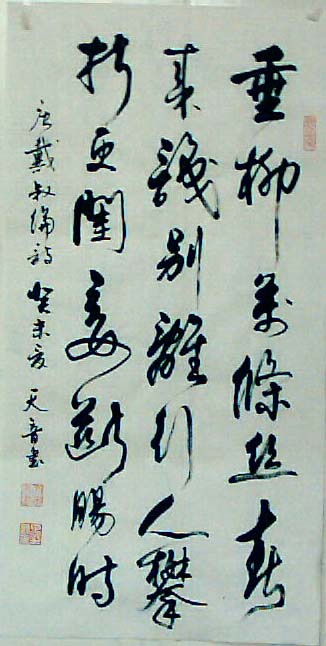 垂柳萬條絲春
来識別離行人攀
折處閨妾斷腸时
唐戴叔倫詩 癸未夏 天音書